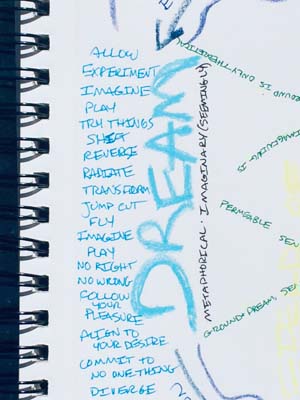 ALLOW
EXPERIMENT
IMAGINE
PLAY
TRY THINGS
SHIFT
REVERSE
RADIATE
TRANSFORM
JUMP CUT
FLY
IMAGINE
PLAY
NO RIGHT
NO WRONG
FOLLOW
YOUR
PLEASURE
ALIGN TO
YOUR DESIRE
COMMIT TO
NO ONE THING
DIVERGE
DREAM
METAPHORICAL · IMAGINARY (SEEMINGLY)
IS ONLY THE
PERMEABLE
GROUND: DREAM,